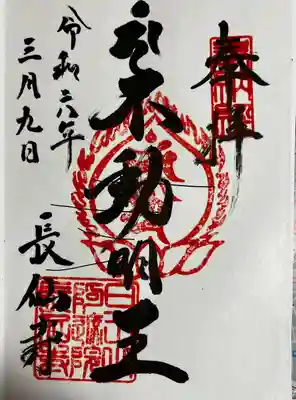 奉拝
不動明王
令和六年
三月九日
長仙寺
阿遮院